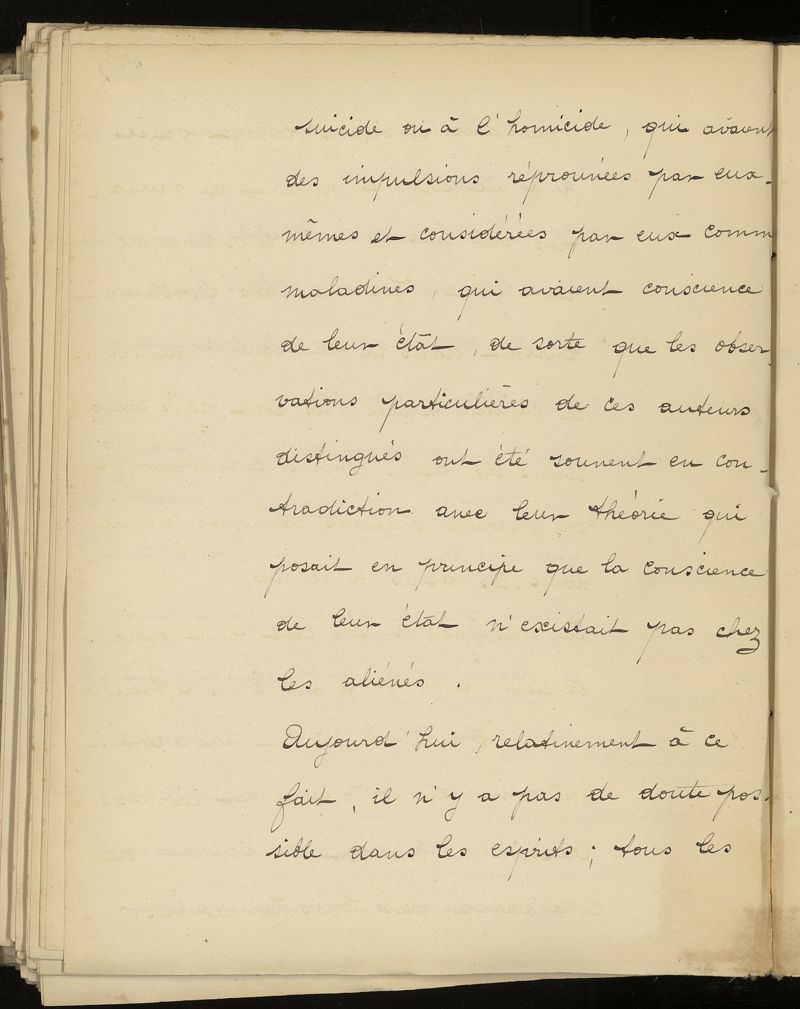 suicide ou à l'homicide, qui avaient
des impulsions réprouvées par eux-
mêmes et considérées par eux comm
maladives, qui avaient conscience
de leur état, de sorte que les obser-
vations particulières de ces auteurs
distingués ont été souvent en con-
tradiction avec leur théorie qui
posait en principe que la conscience
de leur état n'existait pas chez
les aliénés.
Aujourd'hui, relativement à ce
fait, il n'y a pas de doute pos-
sible dans les esprits; tous les